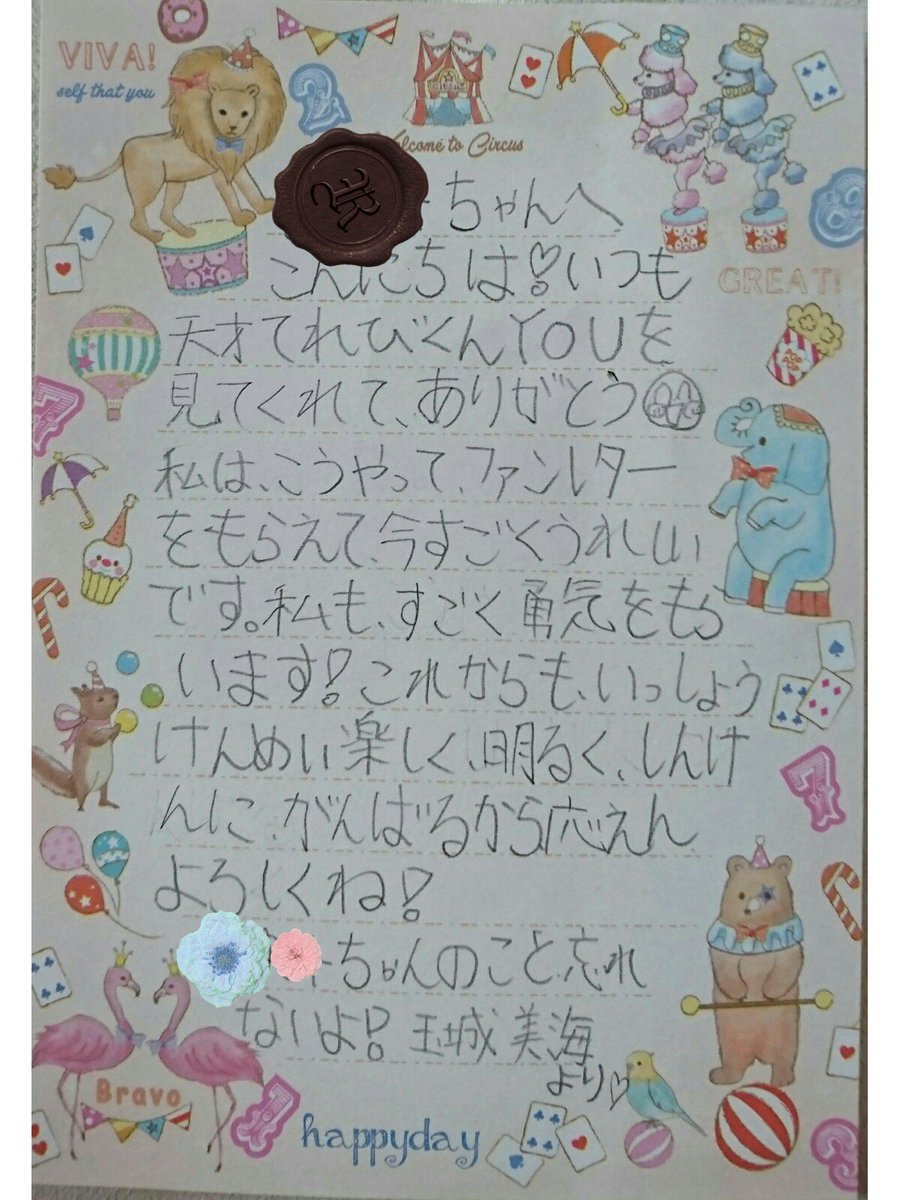 VIVA!
self that you
lcome to Circus
GREAT!
POP
POP
ちゃんへ
こんにちは♡いつも
天才てれびくんYOUを
見てくれて、ありがとう
私は、こうやって、ファンレター
をもらえて、今すごくうれしい
です。私も、すごく勇気をもら
います!これからも、いっしょう
けんめい楽しく、明るく、しんけ
んに、がんばるから応えん
よろしくね!
ーちゃんのこと、忘れ
ないよ!玉城美海
より♡
Bravo
happyday